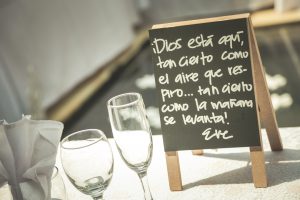 ¡Dios está aquí,
tan cierto como
el aire que res-
piro... tan cierto
como la mañana
se levanta!